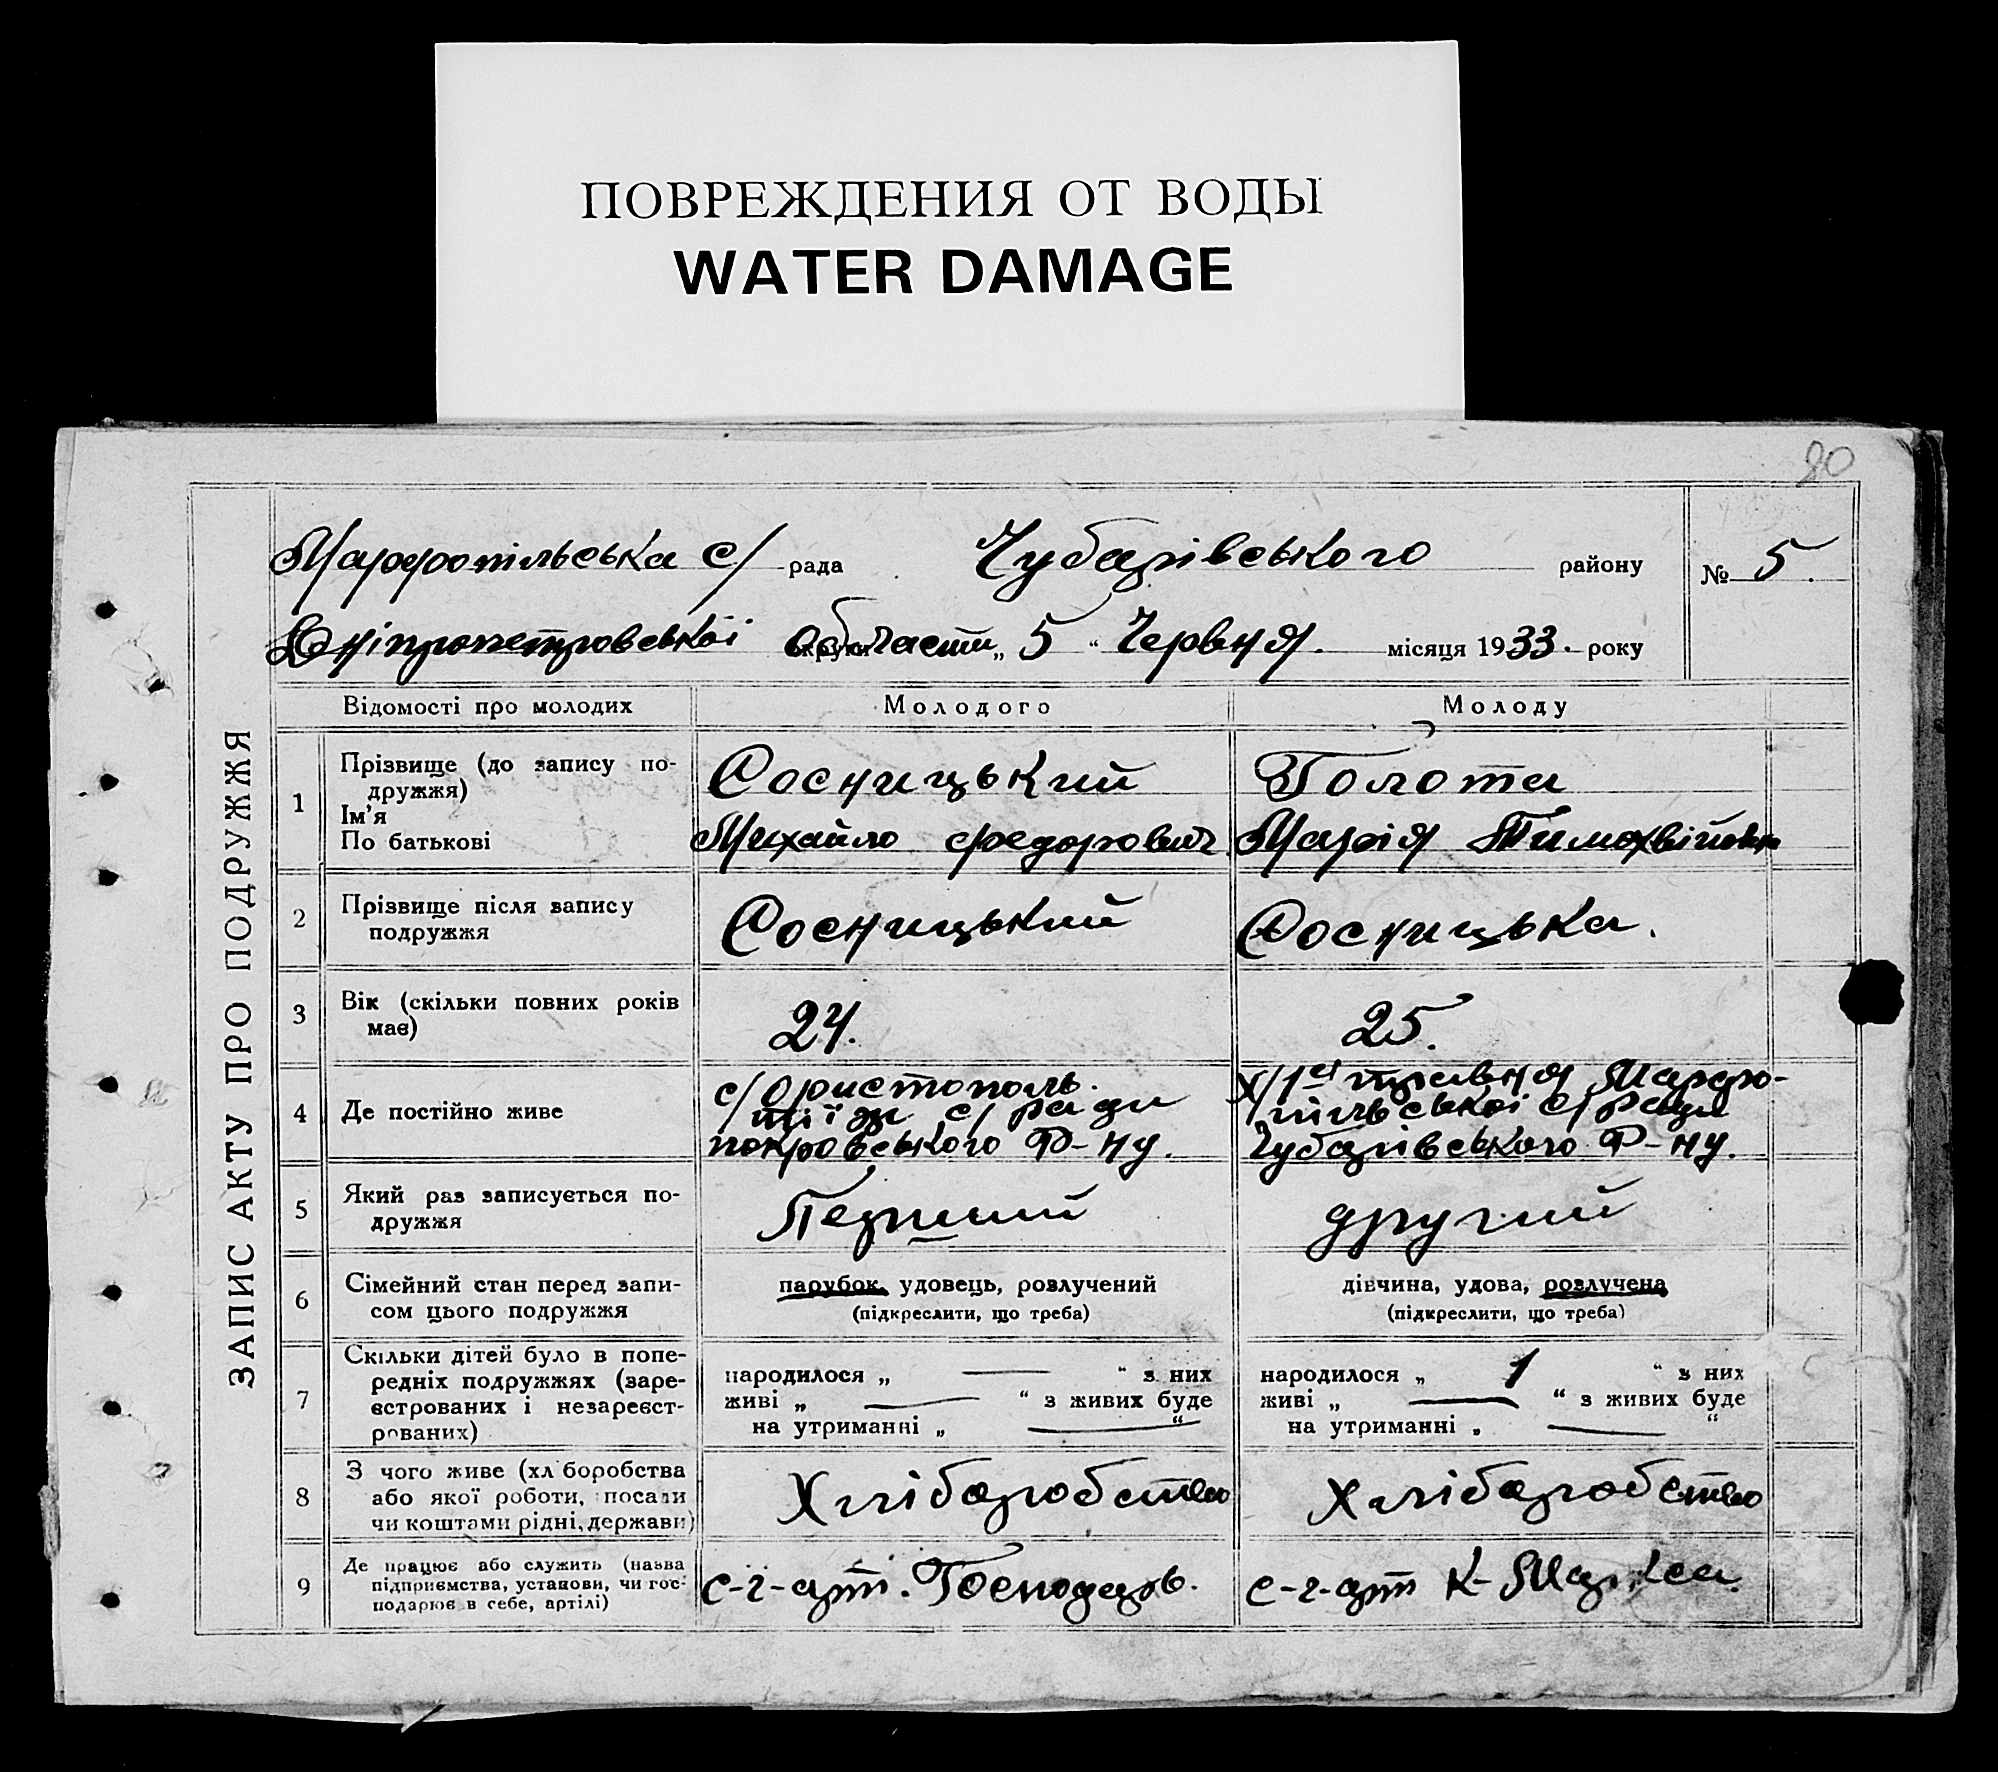 ПОВРЕЖДЕНИЯ ОТ ВОДЫ
WATER DAMAGE
80
ЗАПИС АКТУ ПРО ПОДРУЖЖЯ
Марфопільська с/ рада Чубарівського району № 5.
Дніпропетровської области „ 5 “ Червня. місяця 1933. року
Відомості про молодих Молодого Молоду
1 Прізвище (до запису по-
дружжя)
Ім'я
По батькові
Сосницький
Михайло Федорович
Голота
Марія Тимохвіївна
2 Прізвище після запису
подружжя
Сосницький
Сосницька.
3 Вік (скільки повних років
має)
24.
25.
4 Де постійно живе
с/ Ористополь.
с/ ради
покровського Р-ну.
х/ 1го травня Марфо-
пільської с/ ради
Чубарівського Р-ну.
5 Який раз записується по-
дружжя
Перший
другий
6 Сімейний стан перед запи-
сом цього подружжя
парубок, удовець, розлучений
(підкреслити, що треба)
дівчина, удова, розлучена
(підкреслити, що треба)
7 Скільки дітей було в попе-
редніх подружжях (заре-
єстрованих і незареєст-
рованих)
народилося „ — “ з них
живі „ — “ з живих буде
на утриманні „ — “
народилося „ 1 “ з них
живі „ — “ з живих буде
на утриманні „ — “
8 З чого живе (хліборобства
або якої роботи, посади
чи коштами рідні, держави)
Хліборобство
Хліборобство
9 Де працює або служить (назва
підприємства, установи, чи гос-
подарює в себе, артілі)
с-г-арт. Господарь.
с-г-арт К-Маркса.